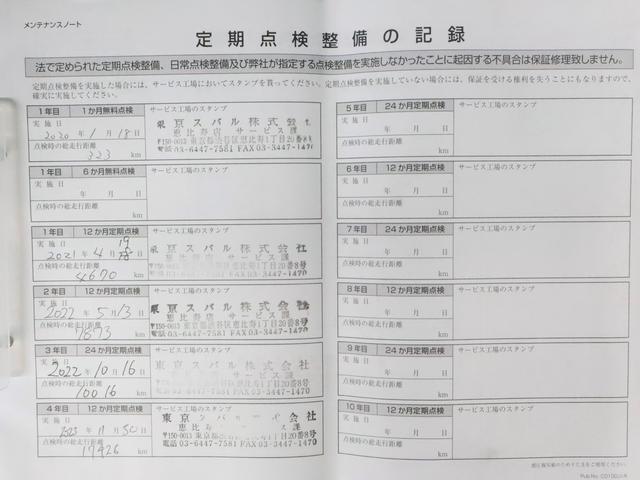 メンテナンスノート
定期点検整備の記録
法で定められた定期点検整備、日常点検整備及び弊社が指定する点検整備を実施しなかったことに起因する不具合は保証修理致しません。
定期点検整備を実施した場合には、サービス工場においてスタンプを貰ってください。定期点検整備を実施していない場合には、保証を受ける権利を失うこともありますので、
確実に実施してください。
1年目 1か月無料点検 サービス工場のスタンプ
実施日
2020年1月18日
点検時の総走行距離
323 km
東京スバル株式会社
恵比寿店 サービス課
〒150-0013 東京都渋谷区恵比寿1丁目20番8号
03-6447-7581 FAX 03-3447-1470
1年目 6か月無料点検 サービス工場のスタンプ
実施日
年 月 日
点検時の総走行距離
km
1年目 12か月定期点検 サービス工場のスタンプ
実施日
19
2021年4月 日
点検時の総走行距離
4670 km
東京スバル株式会社
恵比寿店 サービス課
〒150-0013 東京都渋谷区恵比寿1丁目20番8号
03-6447-7581 FAX 03-3447-1470
2年目 12か月定期点検 サービス工場のスタンプ
実施日
2022年5月13日
点検時の総走行距離
7873 km
東京スバル株式会社
恵比寿店 サービス課
〒150-0013 東京都渋谷区恵比寿1丁目20番8号
03-6447-7581 FAX 03-3447-1470
3年目 24か月定期点検 サービス工場のスタンプ
実施日
2022年10月16日
点検時の総走行距離
10016 km
東京スバル株式会社
恵比寿店 サービス課
〒150-0013 東京都渋谷区恵比寿1丁目20番8号
03-6447-7581 FAX 03-3447-1470
4年目 12か月定期点検 サービス工場のスタンプ
実施日
2023年11月30日
点検時の総走行距離
17426 km
東京スバル 会社
恵比寿 ービス課
〒150-0013 東京都渋谷区恵比寿1丁目20番8号
03-6447-7581 FAX 03-3447-1470
5年目 24か月定期点検 サービス工場のスタンプ
実施日
年 月 日
点検時の総走行距離
km
6年目 12か月定期点検 サービス工場のスタンプ
実施日
年 月 日
点検時の総走行距離
km
7年目 24か月定期点検 サービス工場のスタンプ
実施日
年 月 日
点検時の総走行距離
km
8年目 12か月定期点検 サービス工場のスタンプ
実施日
年 月 日
点検時の総走行距離
km
9年目 24か月定期点検 サービス工場のスタンプ
実施日
年 月 日
点検時の総走行距離
km
10年目 12か月定期点検 サービス工場のスタンプ
実施日
年 月 日
点検時の総走行距離
km